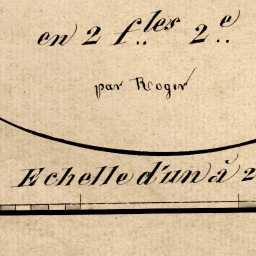 en 2 f.les 2.e
par Roger
Echelle d'un à 2